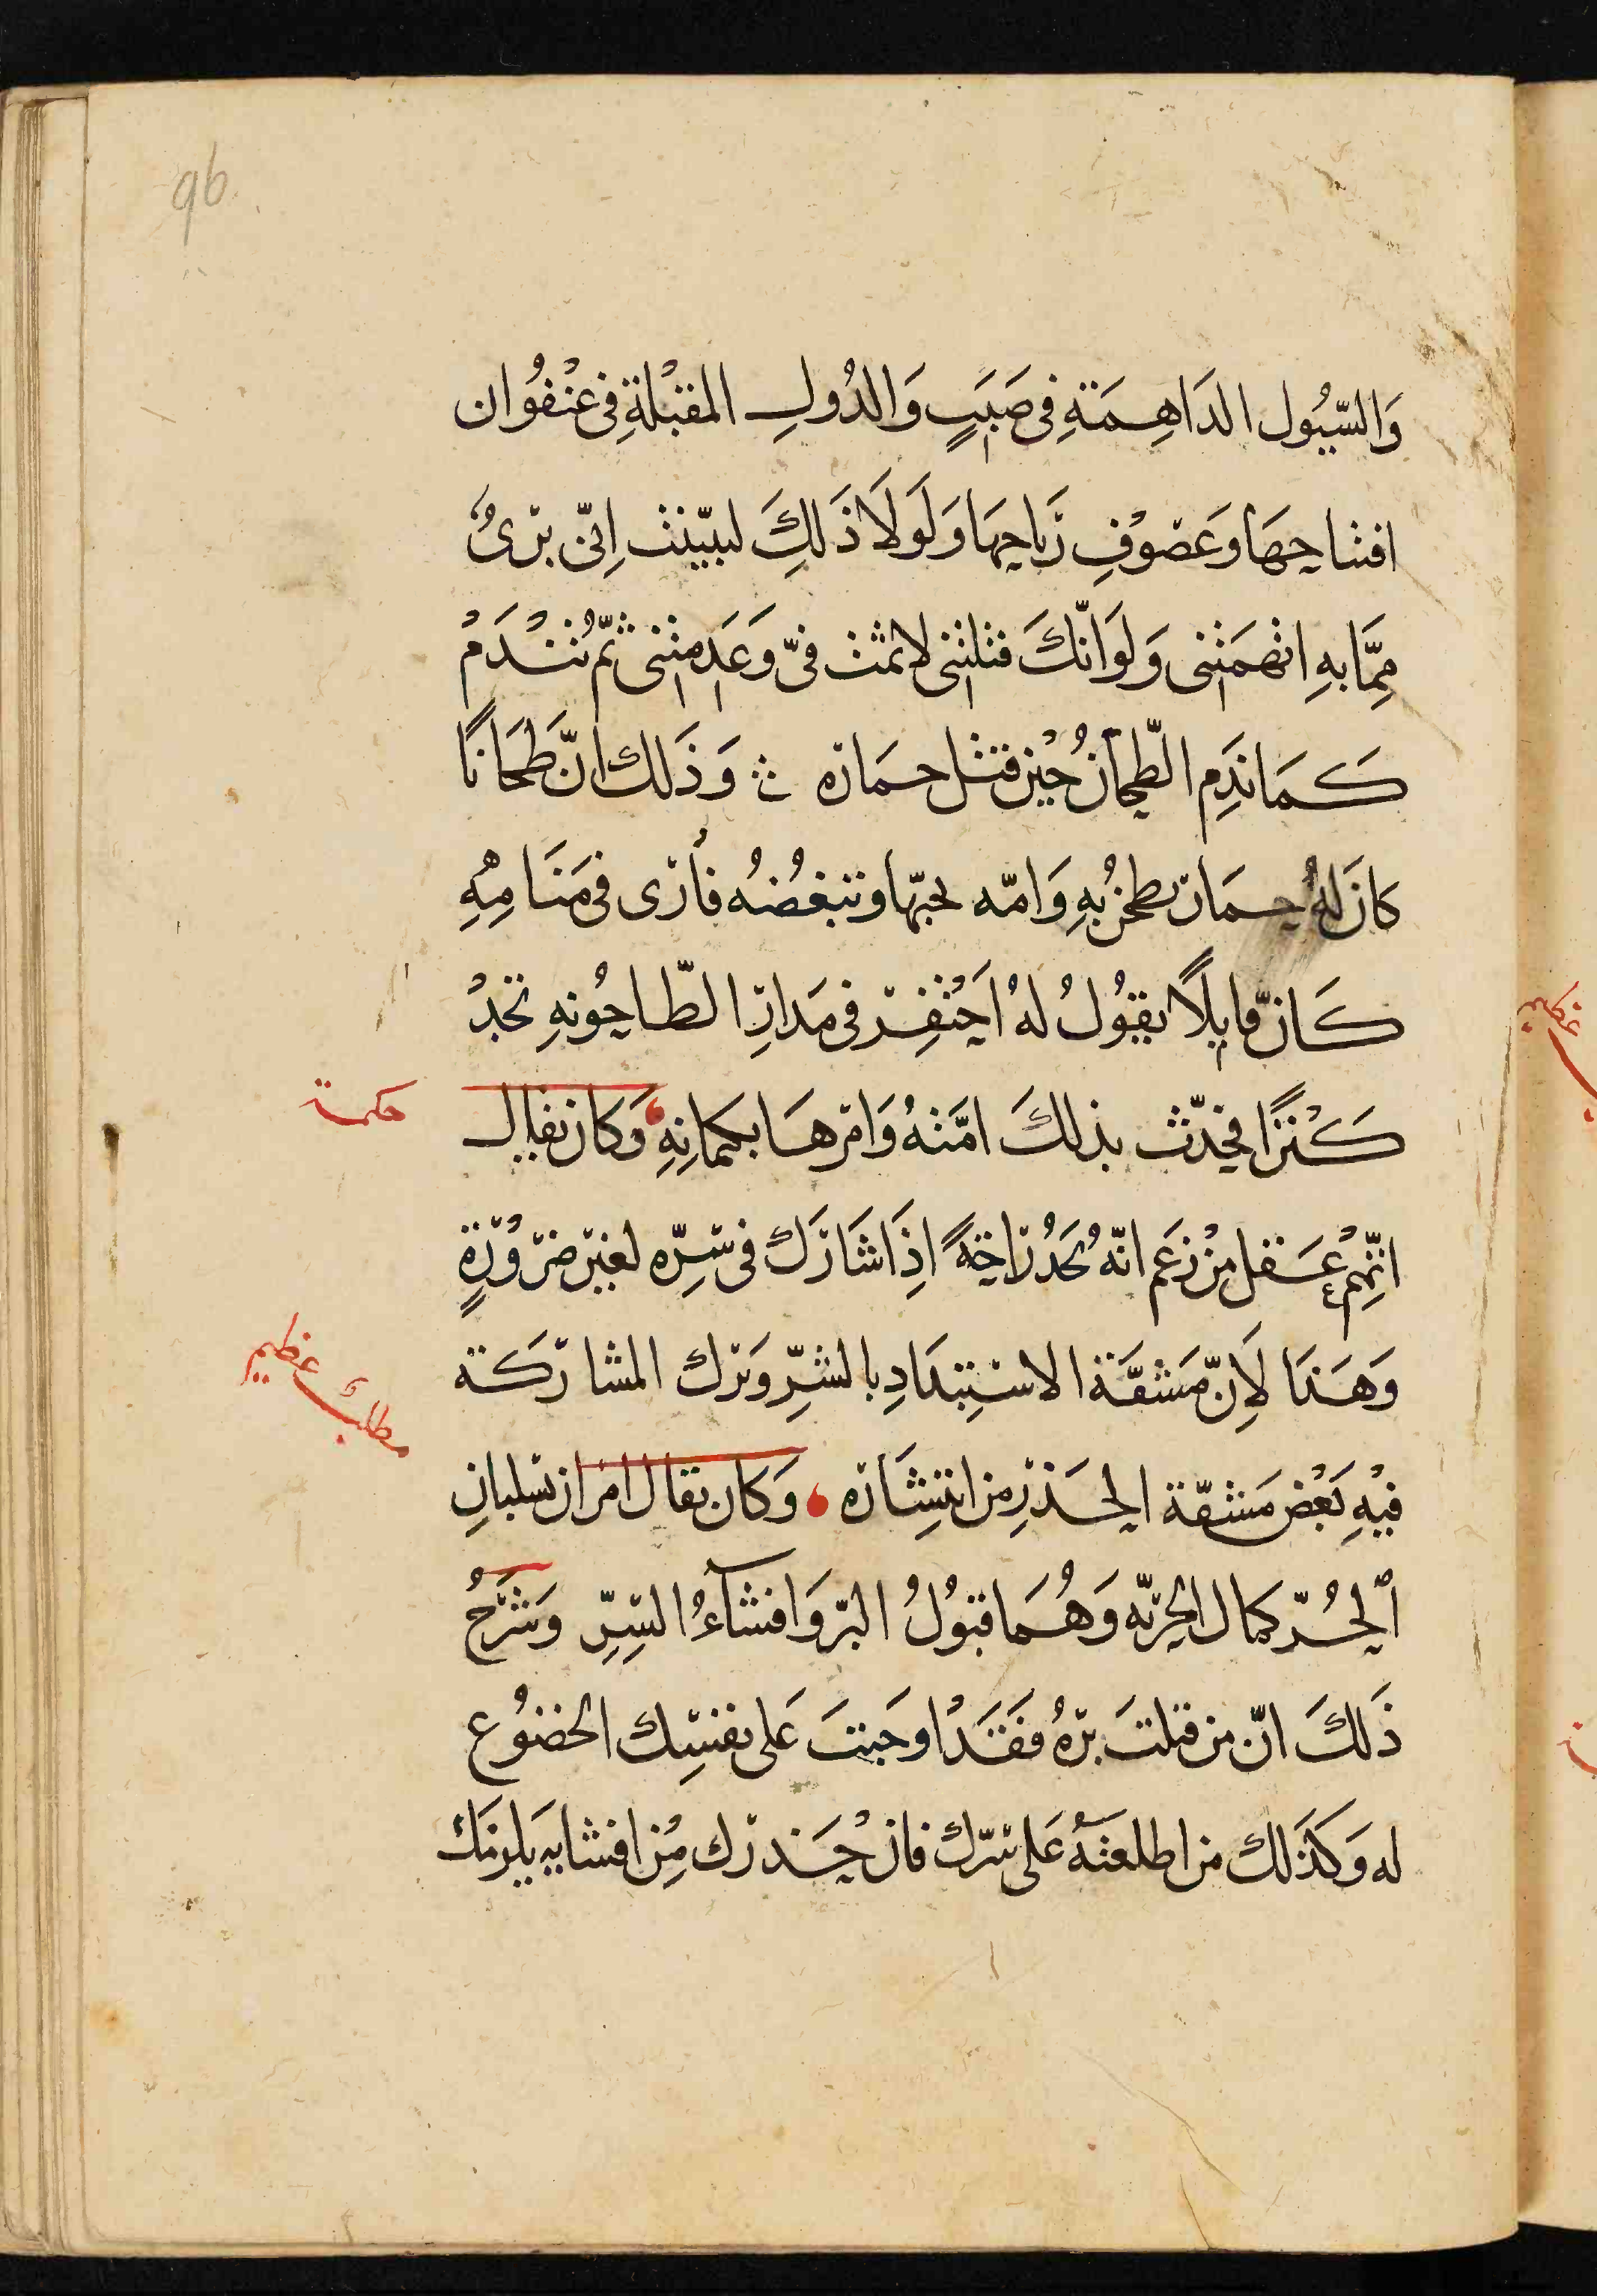 96
وَالسّيُول الدَاهِمَةِ فى صَبَبٍ وَالدُولِ المقبْلةِ فى عنْفُوان
افتتاحِهَا وعَصْوْفِ رَياحِهَا وَلَولَا ذَلكَ لبيّنت اِنّى برىٌ
مِمَّا بهِ اتهمَتنى وَلوَانّكَ قتلتنى لاثمت فىّ وَعَدِمتنى ثمّ تنْدَمْ
كَمَا نَدِم الطّحّانُ حيْن قتل حمَاره وَذَلك انّ طَحَانًا
كانَ لهُ حِمَار يطحنُ بهِ وَامّه يحبّها وتبغُضُه فأرى فى مَنَامِهِ
كَانّ قايلًا يقوُلُ لهُ اَحْتفِر فى مَدَارِ الطّاحُونهِ تجدْ
كَنْزًا فحَدّث بذلكَ امّتهُ وَامرهَا بكتمانِهِ وَكان يقال
حكمة
اتّهِمْ عَقل منْ زعَم انّه يُحَدُ رَاحَةً اذَا شَارَك فى سِرّه لغير ضرُورَةٍ
وَهَذَا لَاِنّ مَشقّة الاستِبْدَادِ بالسّرِّ وَترك المشارَكة
مطلب عظيم
فيْهِ بَعْض مَشقّة الحَذرِ من انتِشَاره وَكان يقال امران يسلبانِ
اَلحُرّ كمال الحرّيه وَهُمَا قبُولُ البرّ وَافشآءُ السِرِّ وَشَرْحُ
ذَلكَ انّ من قبلتَ برّهُ فقَدْ اوجَبتَ عَلى نفسِك الخضوُع
له وَكذَلك من اطلعتهُ عَلى سّرك فان حَذرك مِن افشايهِ يلزمَك